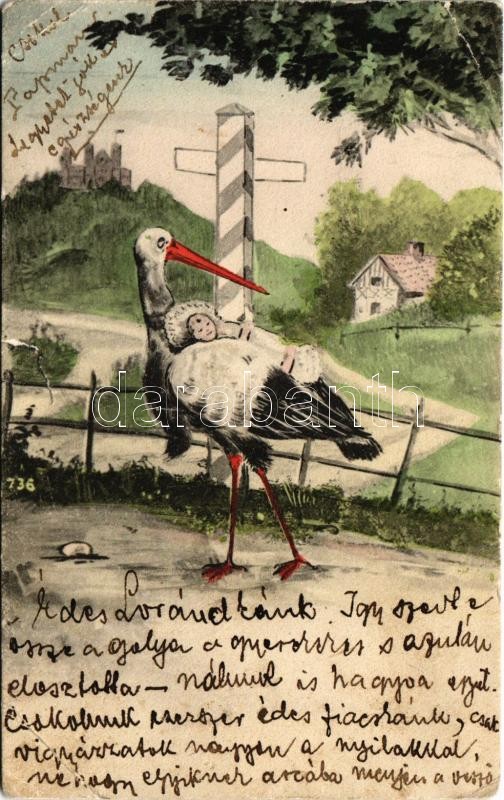 Csókol
Papmama
egészségünk
darabanth
736
Édes Lorándkánk. Így szedi
össze a gólya a gyerekeket s azután
elosztotta — nálunk is hagyva egyet.
Csókolunk ezerszer édes fiacskánk, csak
vigyázzatok nagyon a nyilakkal,
nehogy egyiknek arcába menjen a vessző